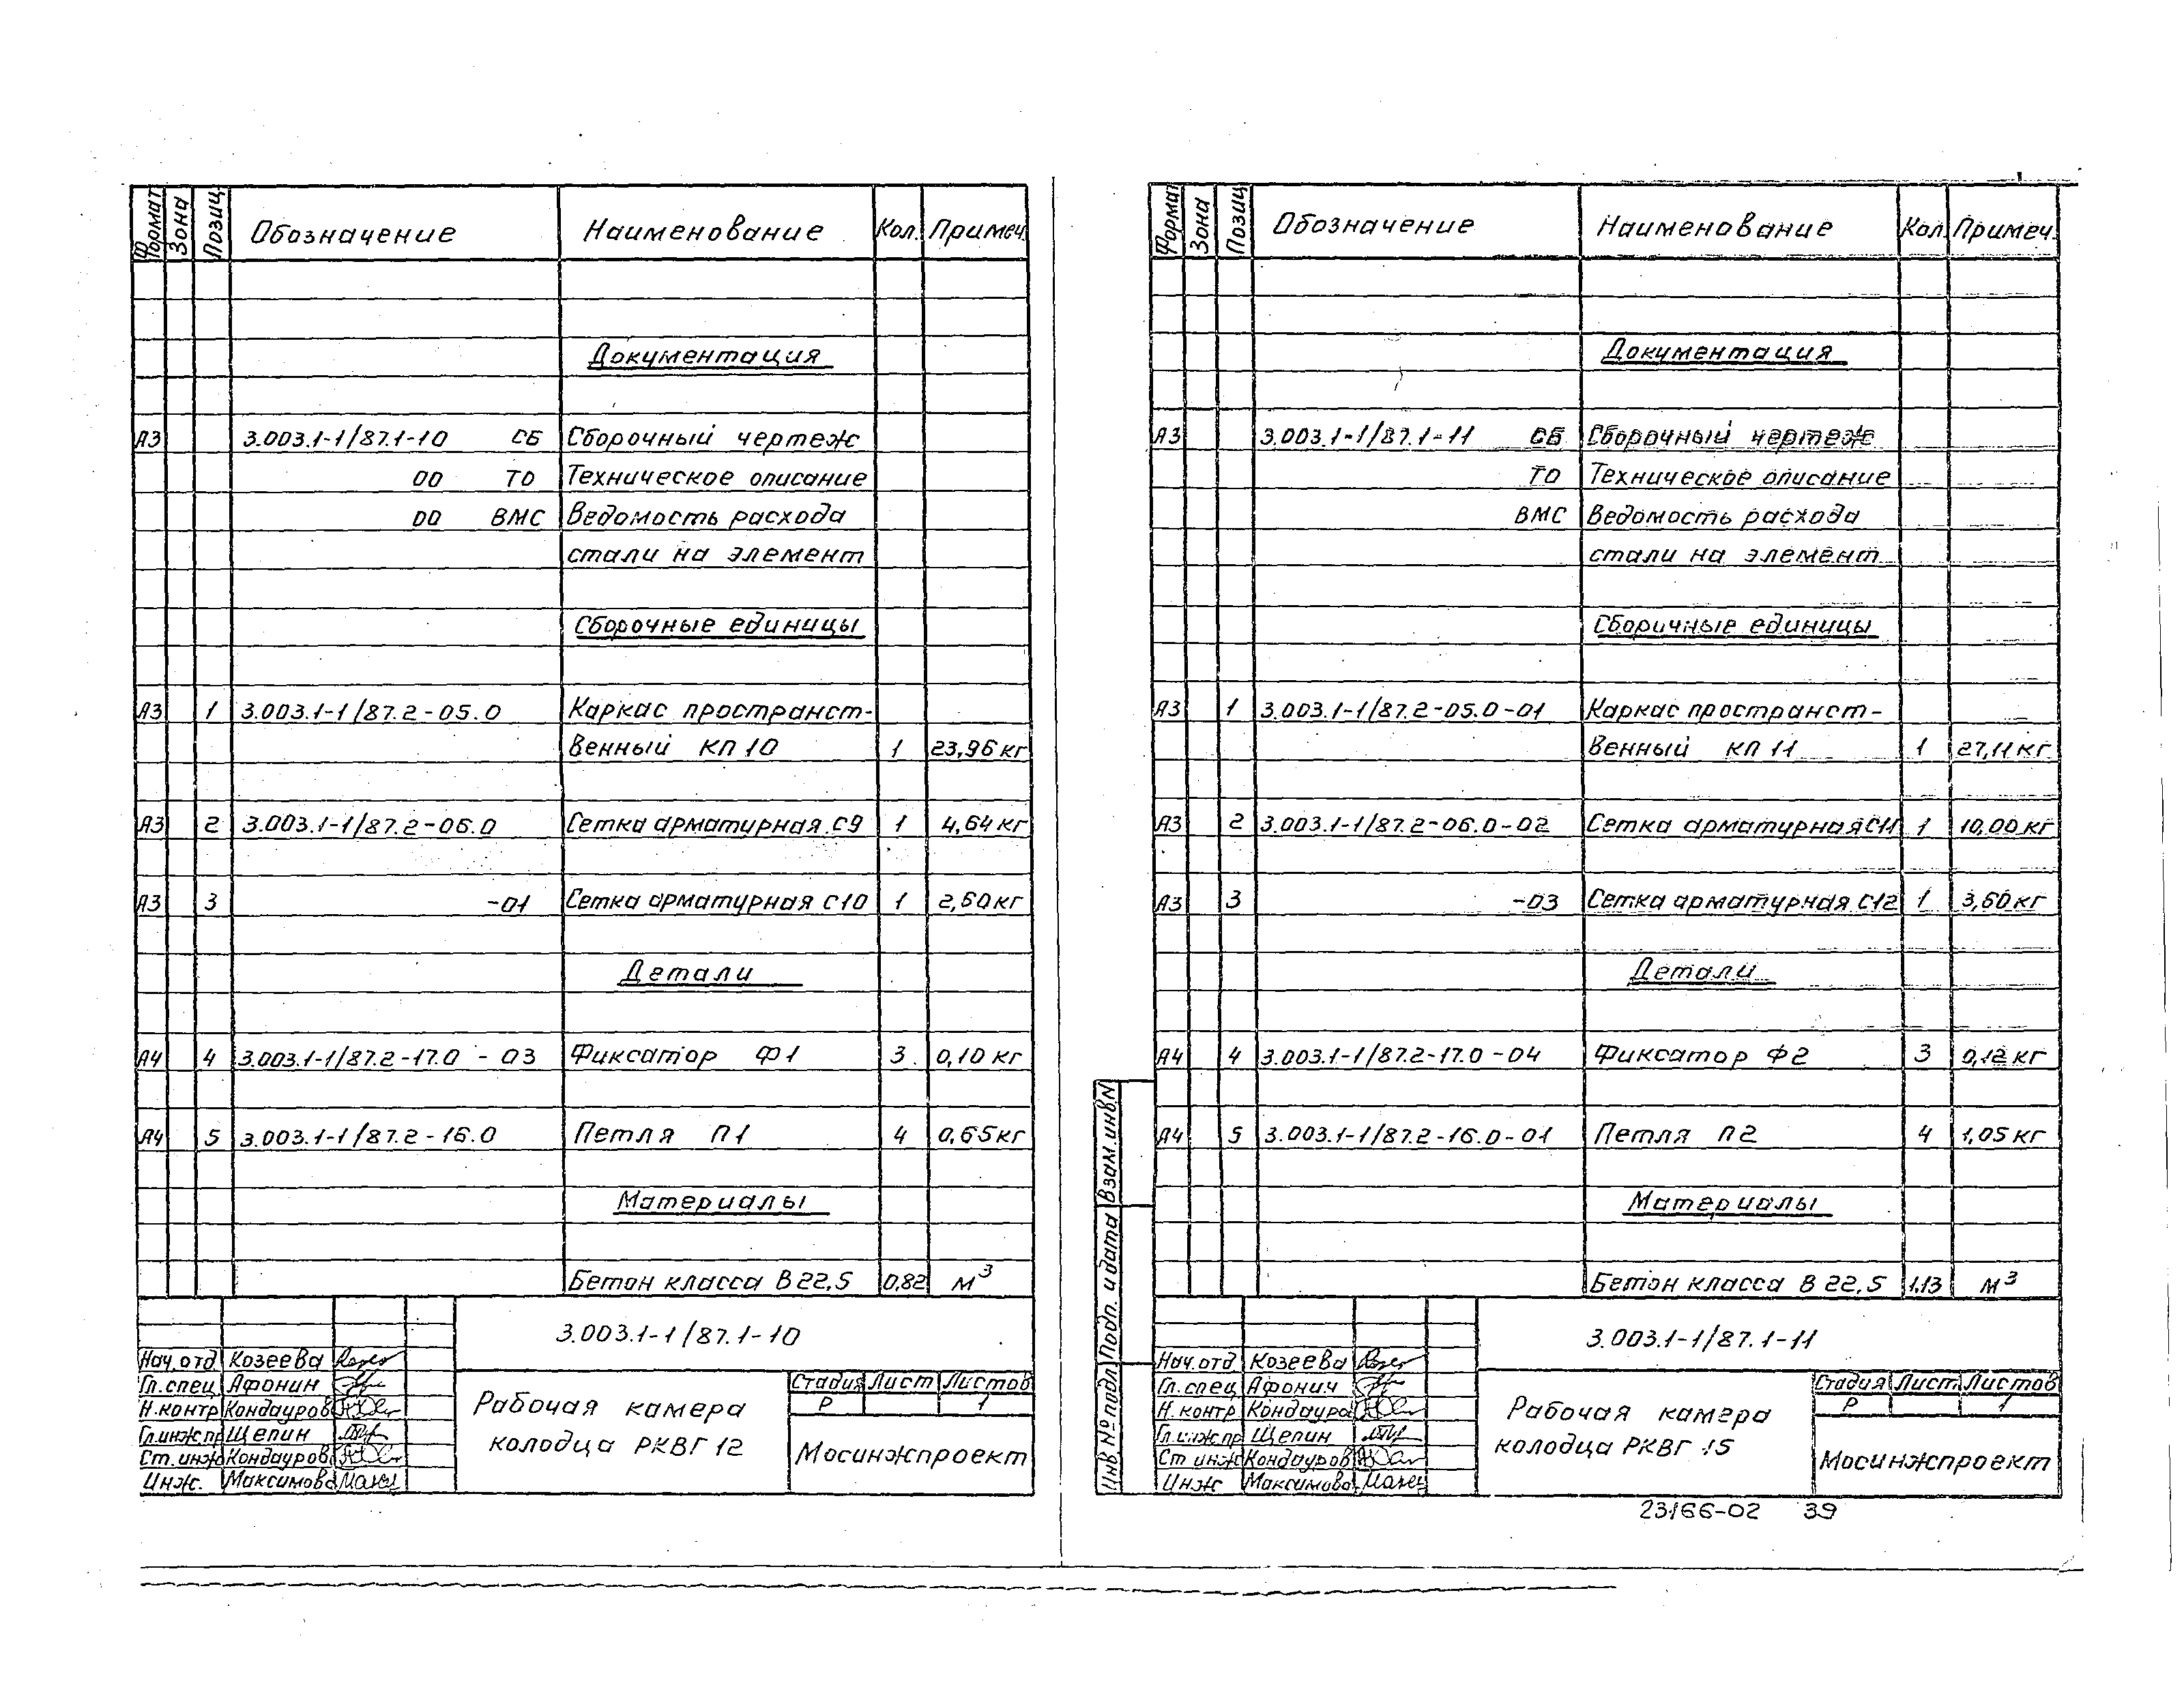 Формат Зона Позиц. Обозначение Наименование Кол. Примеч.
Документация
А3 3.003.1-1/87.1-10 СБ Сборочный чертеж
00 ТО Техническое описание
00 ВМС Ведомость расхода
стали на элемент
Сборочные единицы
А3 1 3.003.1-1/87.2-05.0 Каркас пространст-
венный КП 10 1 23,96 кг
А3 2 3.003.1-1/87.2-06.0 Сетка арматурная С9 1 4,64 кг
А3 3 -01 Сетка арматурная С10 1 2,60 кг
Детали
А4 4 3.003.1-1/87.2-17.0 - 03 Фиксатор Ф1 3 0,10 кг
А4 5 3.003.1-1/87.2-16.0 Петля П1 4 0,65 кг
Материалы
Бетон класса В 22,5 0,82 м³
3.003.1-1/87.1-10
Нач. отд Козеева
Гл. спец Афонин
Н. контр Кондауров
Гл. инж пр Щепин
Ст. инж Кондауров
Инж. Максимова
Рабочая камера
колодца РКВГ 12
Стадия Лист Листов
Р 1
Мосинжпроект
Формат Зона Позиц Обозначение Наименование Кол. Примеч.
Документация
А3 3.003.1-1/87.1-11 СБ Сборочный чертеж
ТО Техническое описание
ВМС Ведомость расхода
стали на элемент
Сборичные единицы
А3 1 3.003.1-1/87.2-05.0-01 Каркас пространст-
венный КП 11 1 27,11 кг
А3 2 3.003.1-1/87.2-06.0-02 Сетка арматурная С11 1 10,00 кг
А3 3 -03 Сетка арматурная С12 1 3,60 кг
Детали
А4 4 3.003.1-1/87.2-17.0-04 Фиксатор Ф2 3 0,12 кг
А4 5 3.003.1-1/87.2-16.0-01 Петля П2 4 1,05 кг
Материалы
Бетон класса В 22,5 1,13 м³
Взам. инв N
Подп. и дата
Инв № подл
3.003.1-1/87.1-11
Нач. отд Козеева
Гл. спец Афонин
Н. контр Кондауров
Гл. инж пр Щепин
Ст инж Кондауров
Инж Максимова
Рабочая камера
колодца РКВГ 15
Стадия Лист Листов
Р 1
Мосинжпроект
23166-02 39